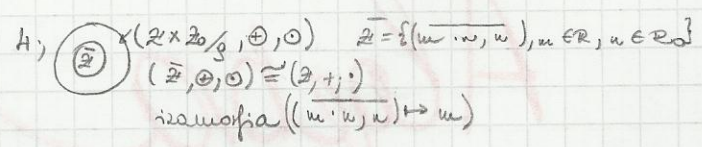 4, Z̄ (Z × Z₀/g, ⊕, ⊙) Z̄ = {(\overline{m·n, n}), m ∈ R, n ∈ R₀}
(Z̄, ⊕, ⊙) ≅ (Z, +, ·)
izomorfia ((\overline{m·n, n}) ↦ m)